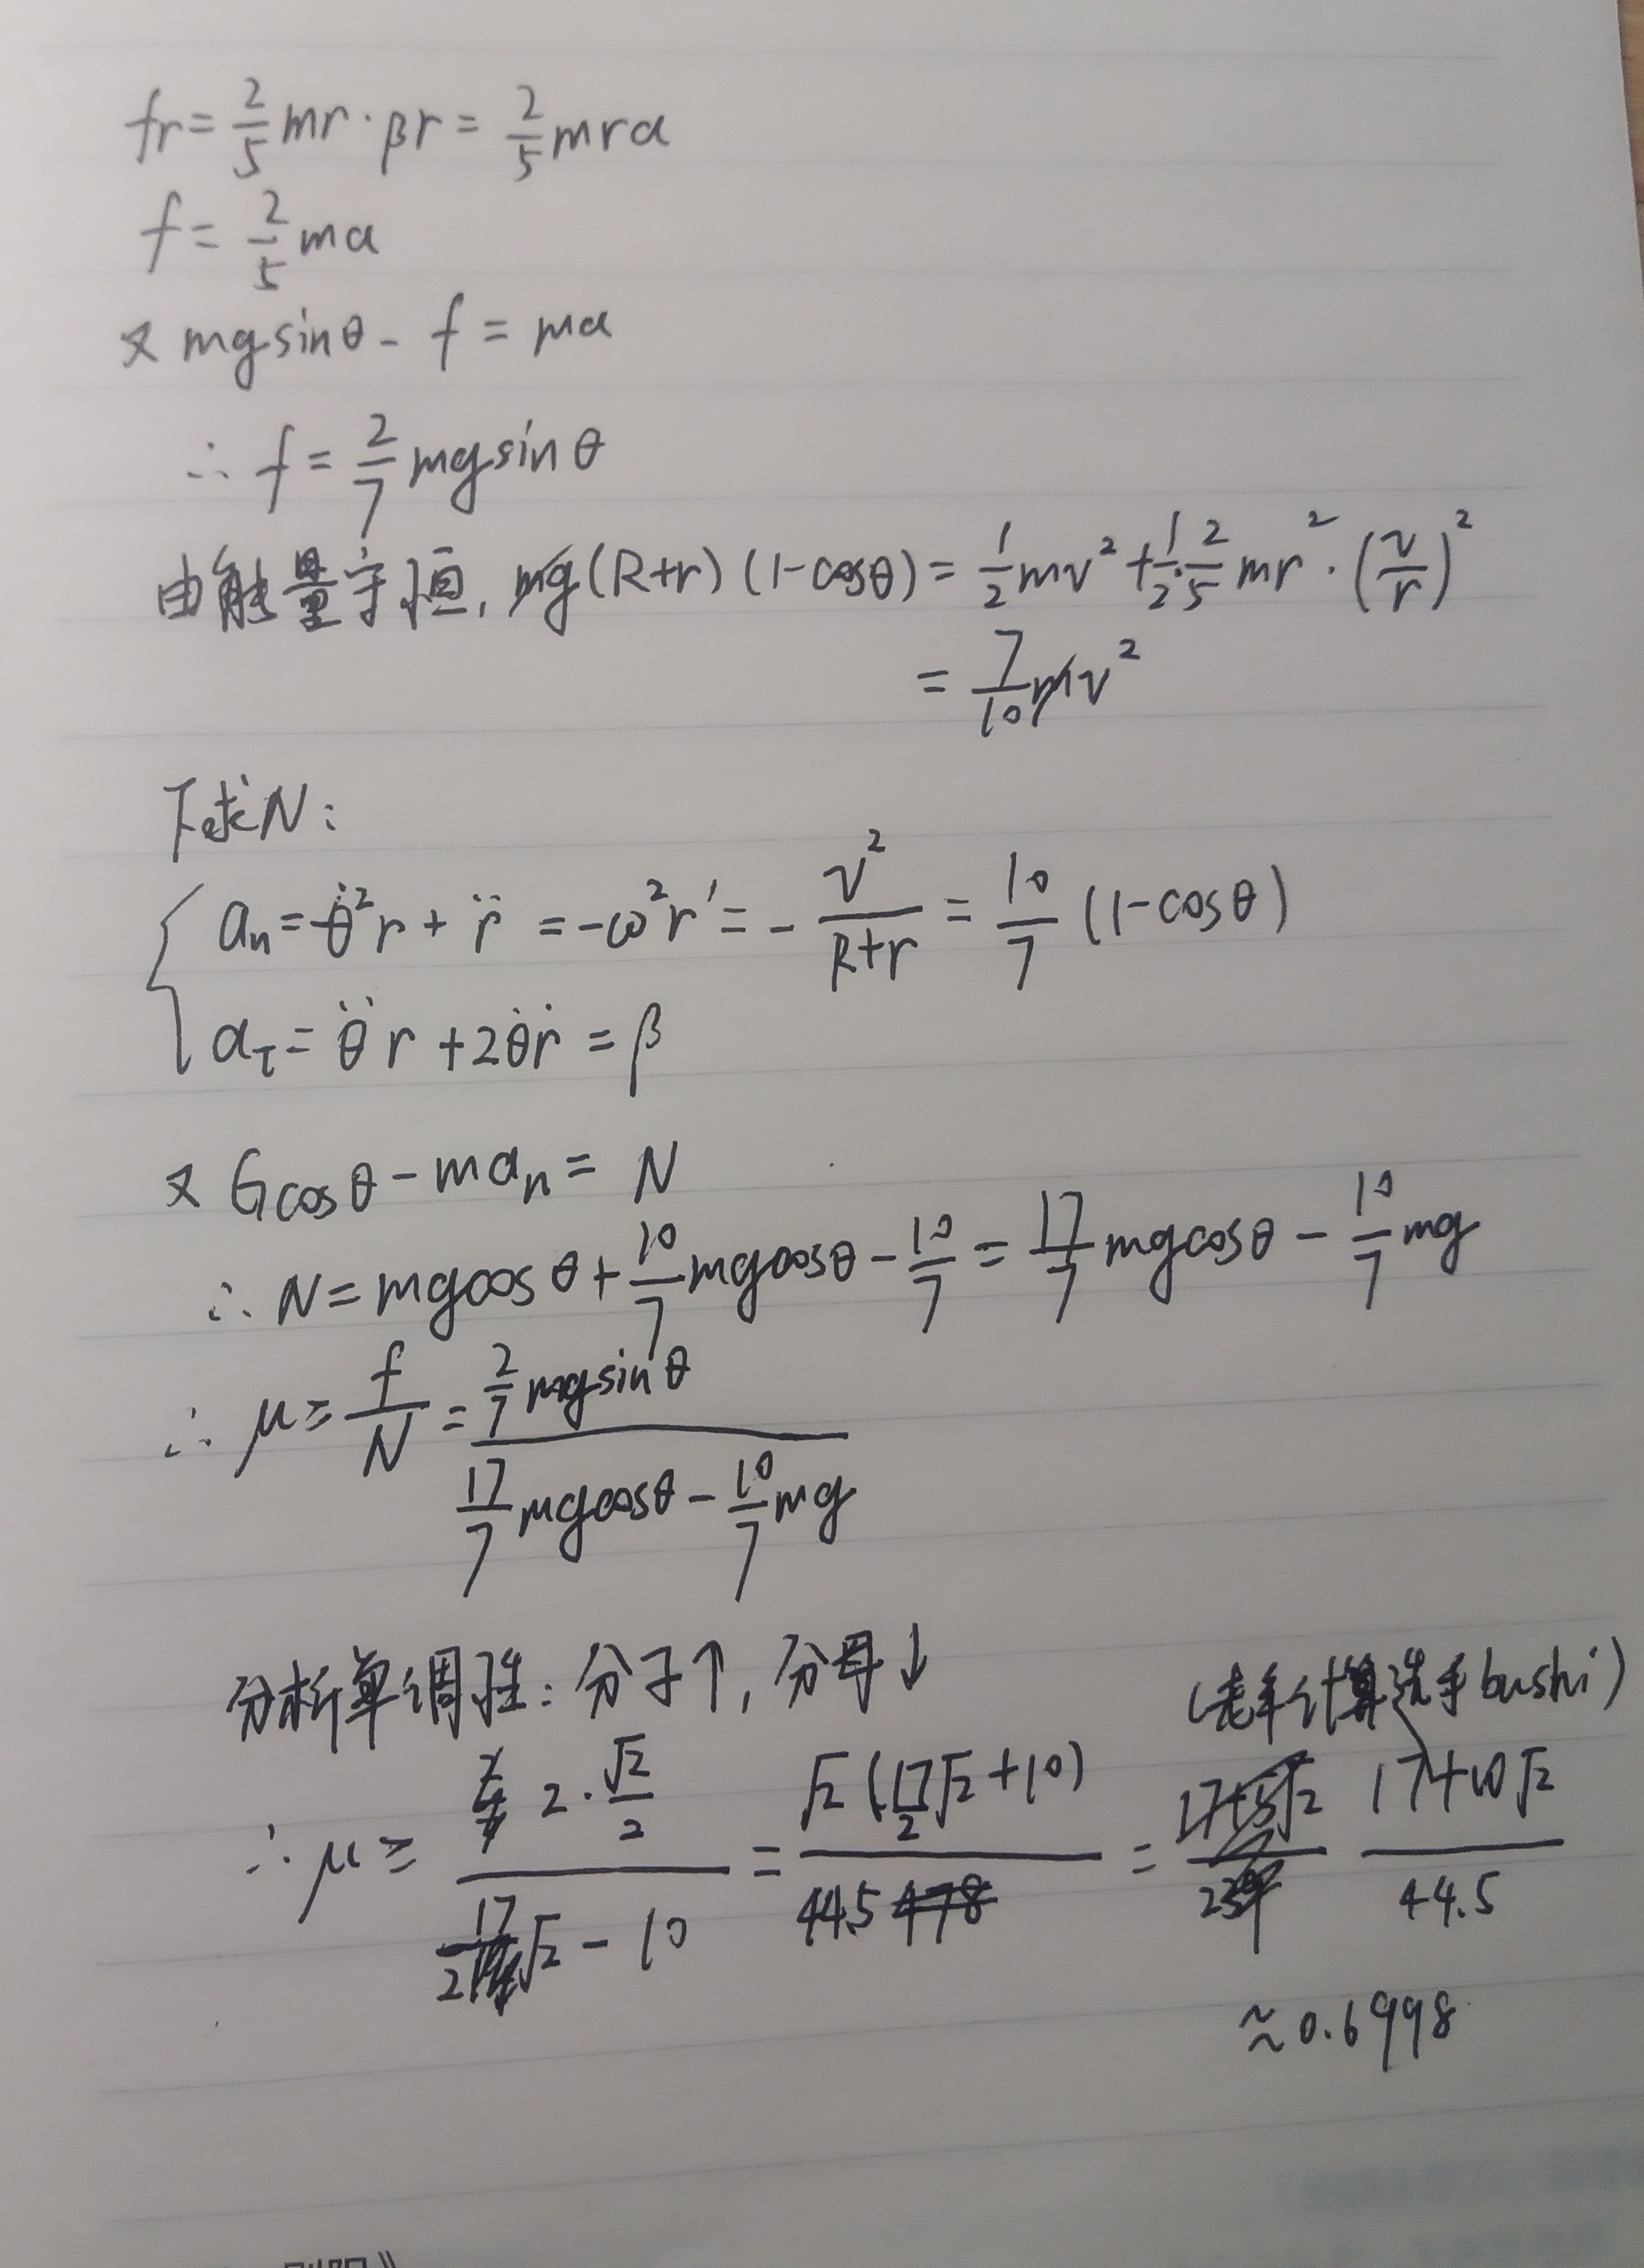 fr = 2/5 mr·βr = 2/5 mra
f = 2/5 ma
又 mgsinθ - f = ma
∴ f = 2/7 mgsinθ
由能量守恒, mg(R+r)(1-cosθ) = 1/2 mv² + 1/2·2/5 mr²·(v/r)²
= 7/10 mv²
下求N:
aₙ = -θ̇²r + r̈ = -ω²r' = - v²/(R+r) = 10/7 (1-cosθ)
a_τ = θ̈r + 2θ̇ṙ = β
又 Gcosθ - maₙ = N
∴ N = mgcosθ + 10/7 mgcosθ - 10/7 = 17/7 mgcosθ - 10/7 mg
∴ μ ≥ f/N = (2/7 mgsinθ)/(17/7 mgcosθ - 10/7 mg)
分析单调性: 分子↑, 分母↓
(老年计算选手bushi)
∴ μ ≥ (2·√2/2)/(17/2 √2 - 10) = √2(17/2 √2 + 10)/44.5 = (17+10√2)/44.5
≈0.6998